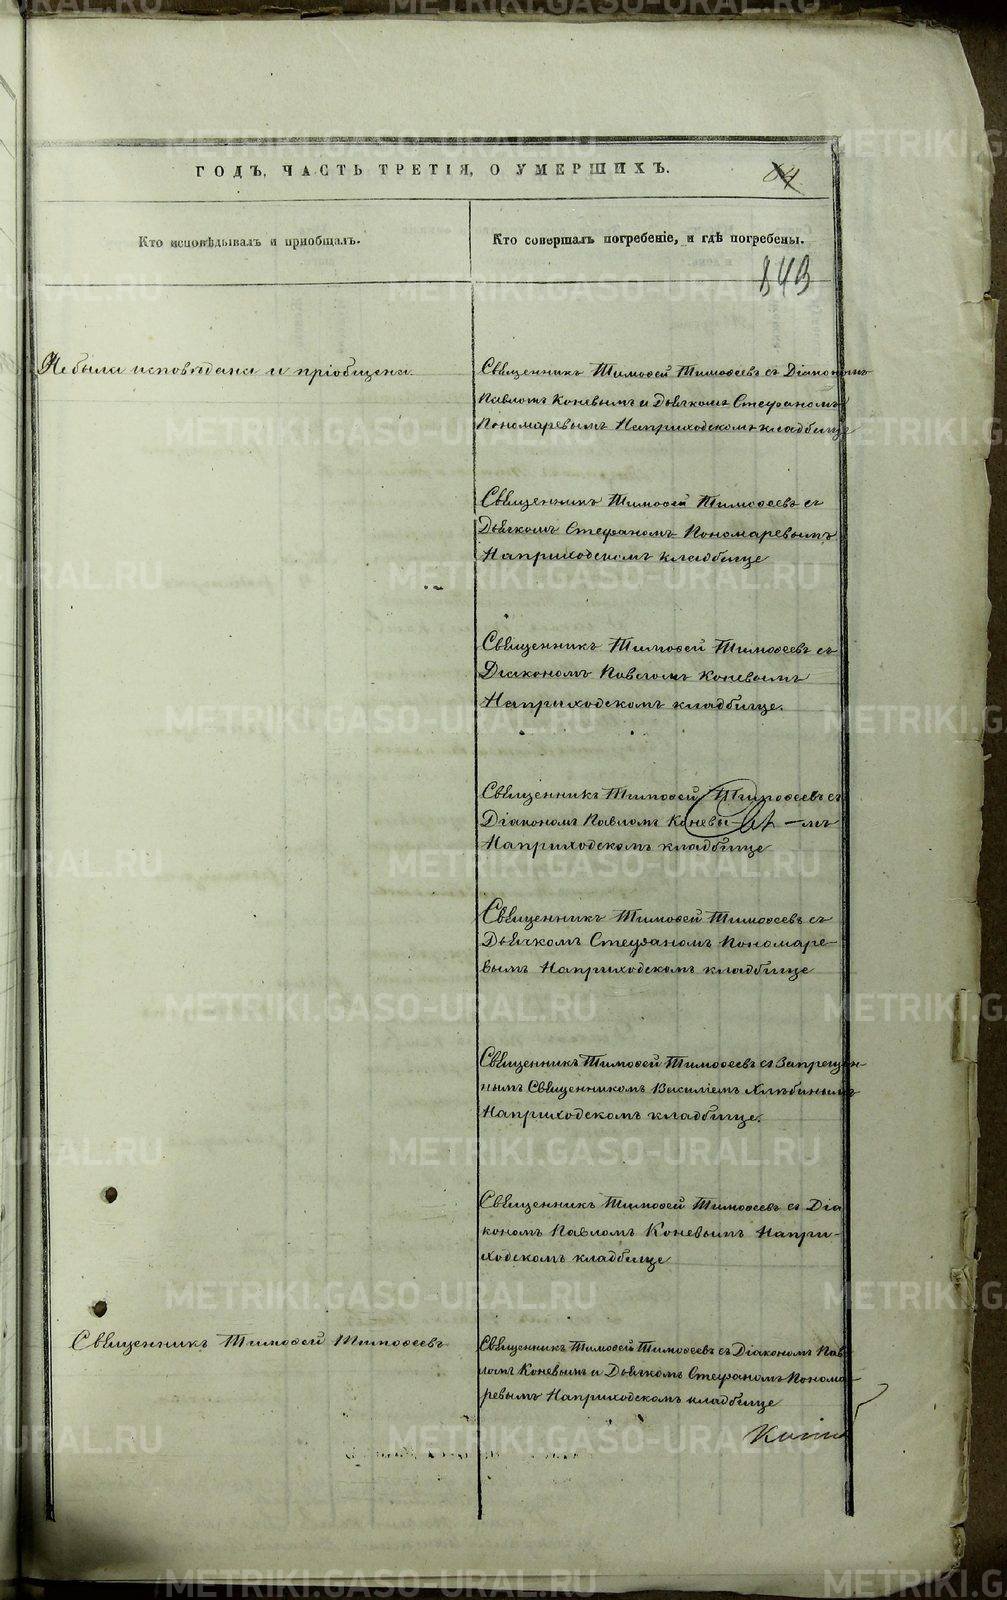 ГОДЪ, ЧАСТЬ ТРЕТІЯ, О УМЕРШИХЪ.
84
Кто исповѣдывалъ и пріобщалъ.
Кто совершалъ погребеніе, и гдѣ погребены.
843
Не была исповѣдана и пріобщена.
Священникъ Тимоѳей Тимоѳеевъ съ Діакономъ
Павломъ Коневымъ и Дьячкомъ Стефаномъ
Пономаревымъ На приходскомъ кладбище
Священникъ Тимоѳей Тимоѳеевъ съ
Дьячкомъ Стефаномъ Пономаревымъ
На приходскомъ кладбище
Священникъ Тимоѳей Тимоѳеевъ съ
Діакономъ Павломъ Коневымъ
На приходскомъ кладбище.
Священникъ Тимоѳей Тимоѳеевъ съ
Діакономъ Павломъ Коневы-мъ
На приходскомъ кладбище
Священникъ Тимоѳей Тимоѳеевъ съ
Дьячкомъ Стефаномъ Пономаре-
вымъ На приходскомъ кладбище
Священникъ Тимоѳей Тимоѳеевъ съ Запрещен-
нымъ Священникомъ Василіемъ Хлѣбинымъ
На приходскомъ кладбище.
Священникъ Тимоѳей Тимоѳеевъ съ Діа
кономъ Павломъ Коневымъ На при-
ходскомъ кладбище
Священникъ Тимоѳей Тимоѳеевъ
Священникъ Тимоѳей Тимоѳеевъ съ Діакономъ Пав-
ломъ Коневымъ и Дьячкомъ Стефаномъ Понома-
ревымъ На приходскомъ кладбище
METRIKI.GASO-URAL.RU